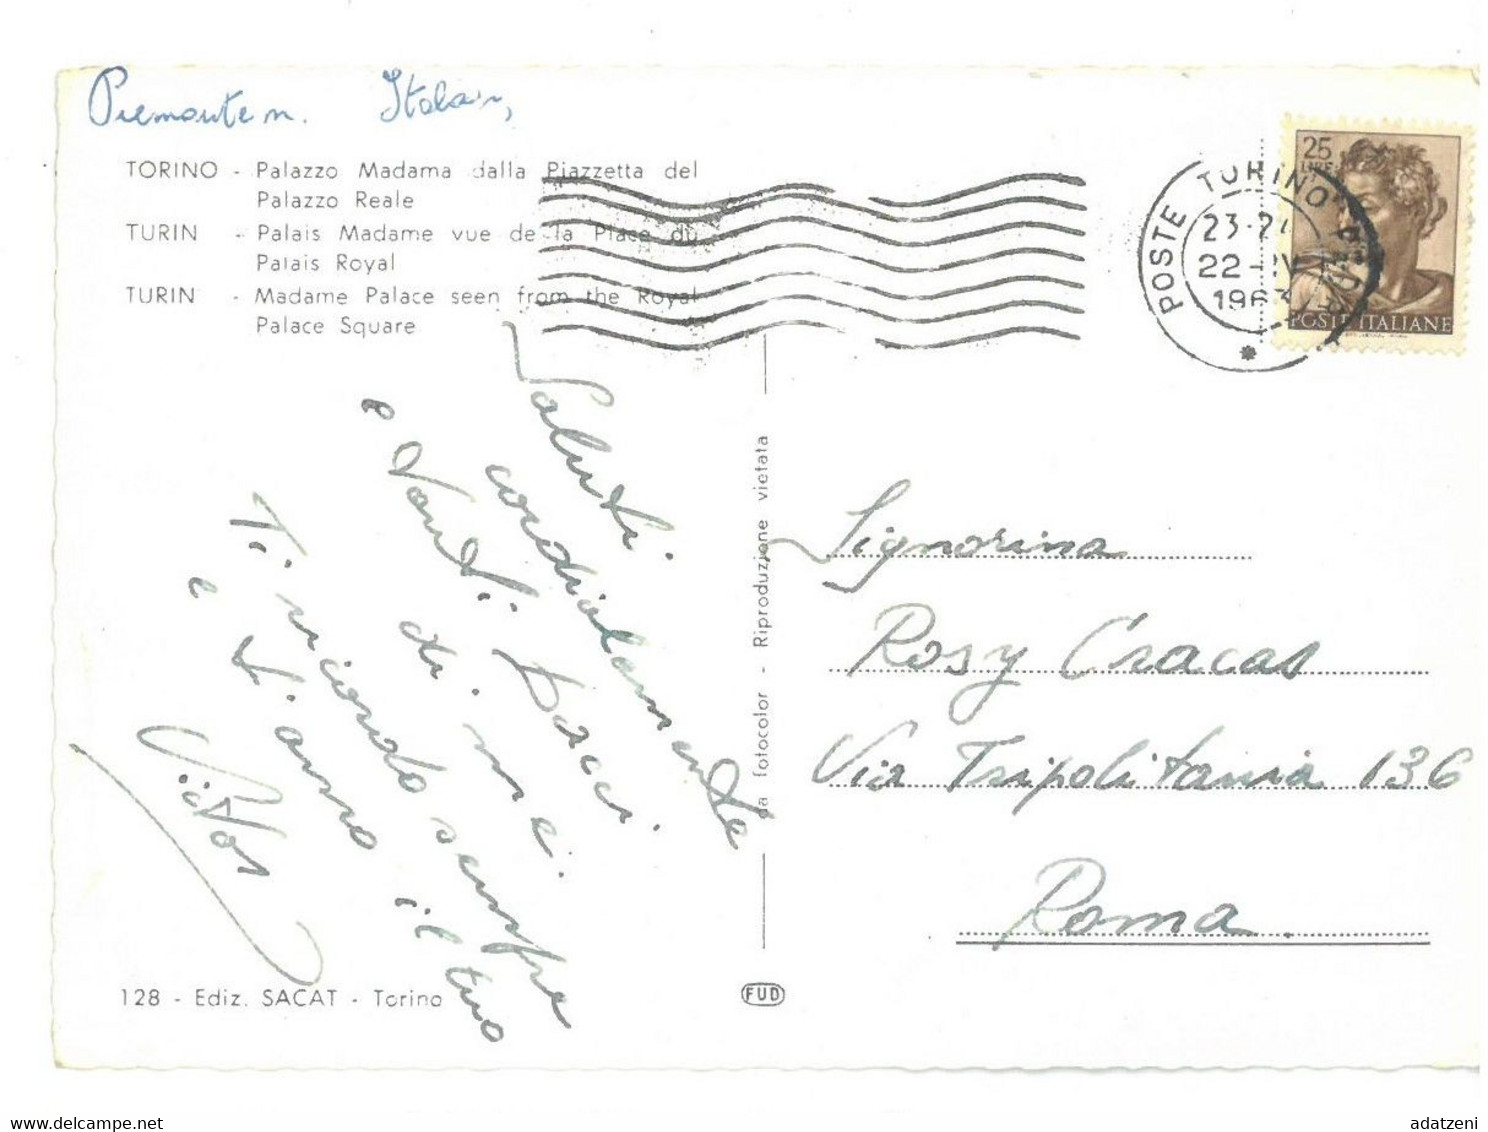 Piemonte n. Italan,
TORINO - Palazzo Madama dalla Piazzetta del
Palazzo Reale
TURIN - Palais Madame vue de la Place du
Palais Royal
TURIN - Madame Palace seen from the Royal
Palace Square
POSTE TORINO
23-24
22-IV
1963
25
LIRE
POSTE ITALIANE
Saluti
cordialmente
e tanti bacci
di me.
Ti ricordo sempre
e t'amo il tuo
Vitos
fotocolor - Riproduzione vietata
Signorina
Rosy Cracas
Via Tripolitania 136
Roma.
128 - Ediz. SACAT - Torino
FUD
www.delcampe.net
adatzeni